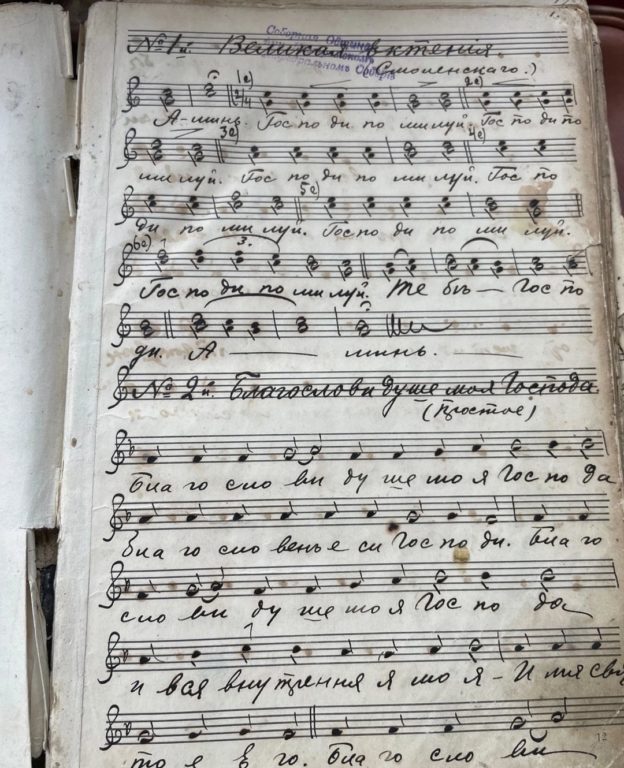 № 1й. Великая ектения.
Соборная Община
Соборѣ
(Смоленскаго.)
1е) 2е)
А-минь. Гос по ди по ми луй. Гос по ди по
3е) 4е)
ми луй. Гос по ди по ми луй. Гос по
5е)
ди по ми луй. Гос по ди по ми луй.
6е) 3.
Гос по ди по ми луй. Те бѣ — Гос по
ди. А — минь.
№ 2й. Благослови душе моя Господа
(Простое)
Бла го сло ви ду ше мо я Гос по да
Бла го сло вен е си Гос по ди. Бла го
сло ви ду ше мо я Гос по да
и вся внутрення я мо я - И мя свя
то е Е го. Бла го сло ви
12